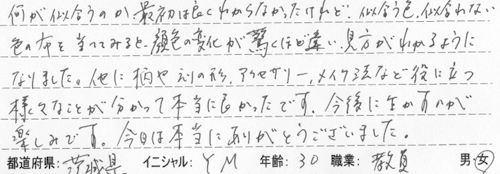 何が似合うのか最初は良くわからなかったけれど、似合う色、似合わない
色の布を当ててみると、顔色の変化が驚くほど違い、見方がわかるように
なりました。他に柄や衿の形、アクセサリー、メイク法など役に立つ
様々なことが分かって本当に良かったです。今後に生かすのが
楽しみです。今日は本当にありがとうございました。
都道府県: 茨城県 イニシャル: YM 年齢: 30 職業: 教員 男・女